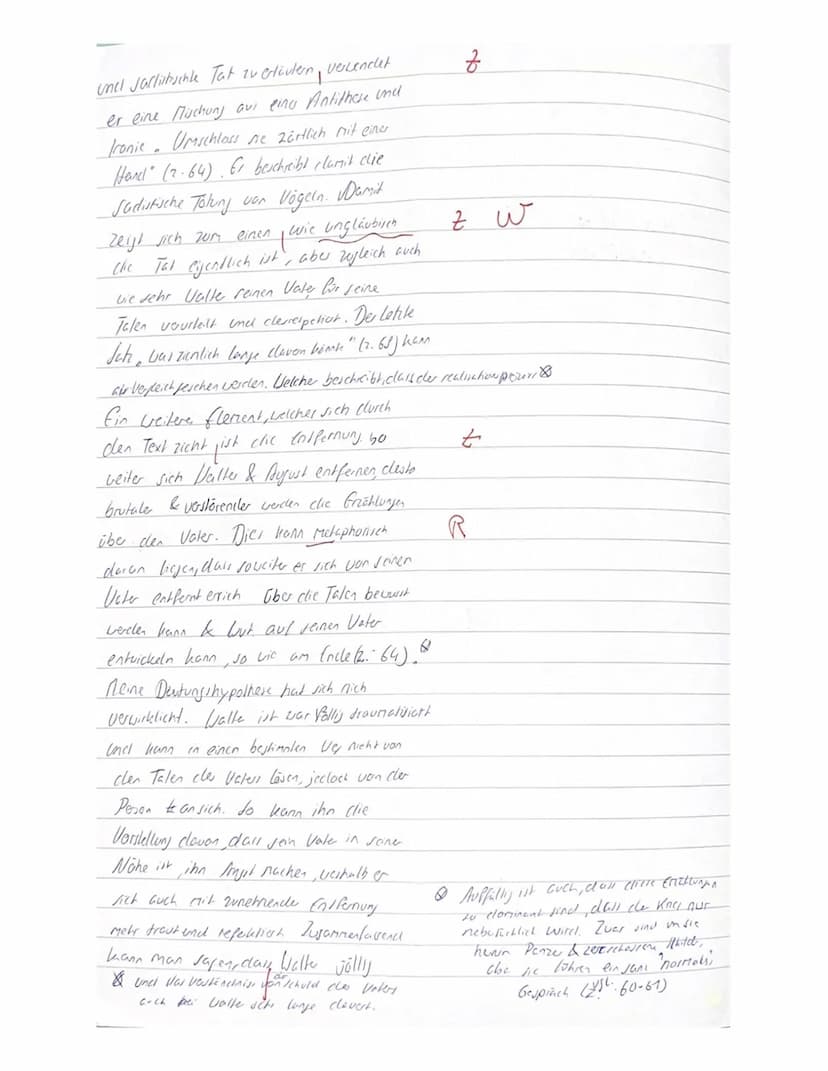 und sadistische Tat zu erläutern, verwendet Z
er eine Mischung aus einer Antithese und
Ironie „Umschloss sie zärtlich mit einer
Hand" (Z. 64). Er beschreibt damit die
sadistische Tötung von Vögeln. Damit
zeigt sich zum einen, wie ungläubisch Z W
die Tat eigentlich ist, aber zugleich auch
wie sehr Walter seinen Vater für seine
Taten verurteilt und
Satz (Z. 65) kann
als Vergleich gesehen werden. Welcher beschreibt, dass der
Ein weiteres Element, welches sich durch
den Text zieht, ist die Entfernung. So Z
weiter sich Walter & August entfernen, desto
brutaler & verstörender werden die Erzählungen
über den Vater. Dies kann metaphorisch R
daran liegen, dass soweiter er sich von seinen
Vater entfernt er sich über die Taten bewusst
werden kann & Wut auf seinen Vater
entwickeln kann, so wie am Ende (Z. 64). ⊗
Meine Deutungshypothese hat sich nich
verwirklicht. Walter ist zwar völlig traumatisiert
und kann in einen bestimmten Weg nicht von
den Taten des Vaters lösen, jedoch von der
Person ansich. So kann ihn die
Vorstellung davon, dass sein Vater in seiner
Nähe ist, ihn Angst machen, weshalb er
sich auch mit zunehmende Entfernung
mehr traut und reflektiert. Zusammenfassend
kann man sagen, dass Walter völlig
⊗ und das Verständniss von schuld des Vaters
auch bei Walter sehr lange dauert.
⊗ Auffällig ist auch, dass diese Erzählungen
so dominant sind, dass der Krieg nur
nebensächlich wird. Zwar sind um sie
herum Panzer & zerschossene
aber sie führen ein "normales"
Gespräch (vgl. Z. 60-61)